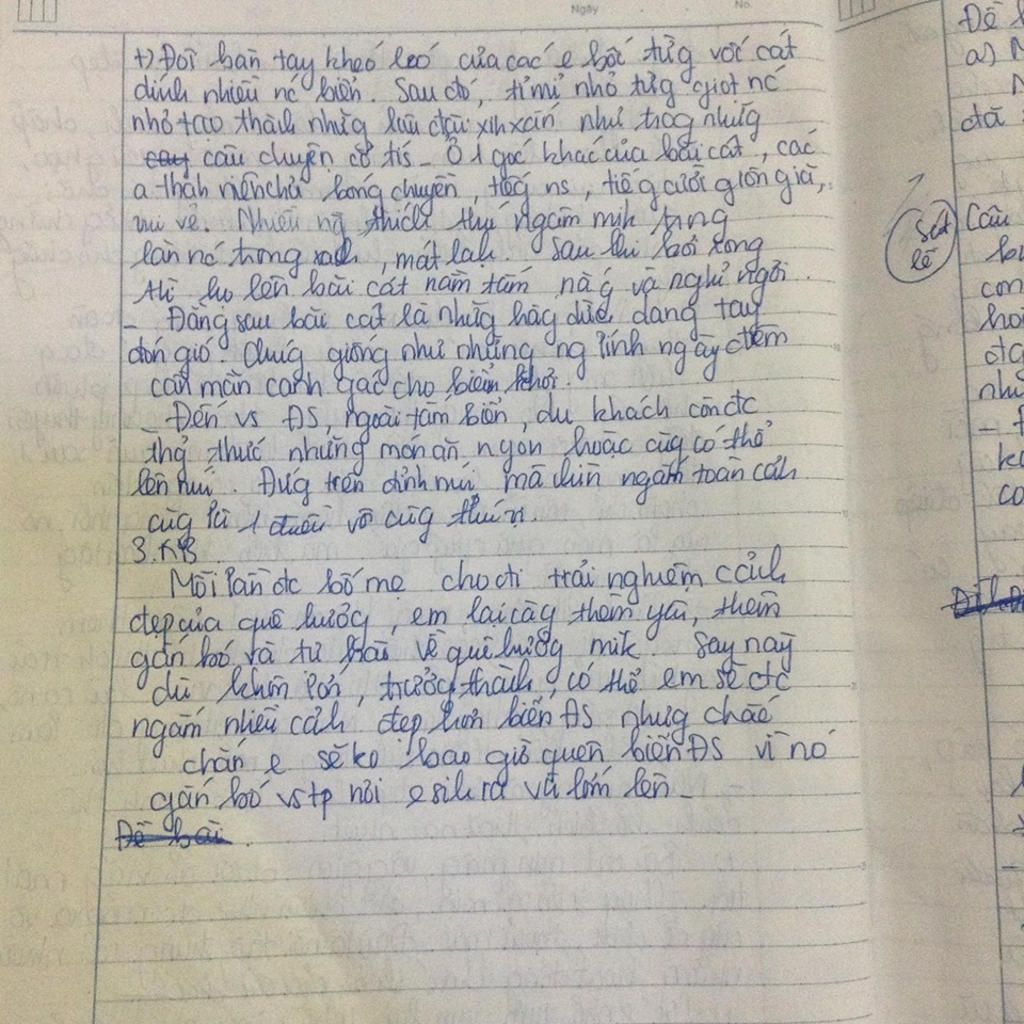 Ngày
No.
+) Đôi bàn tay khéo léo của các e bốc từg vốc cát
dính nhiều nc biển. Sau đó, tỉ mỉ nhỏ từg giọt nc
nhỏ tạo thành nhữg lâu đài xinh xắn như trog nhữg
câu chuyện cổ tís - Ở 1 góc khác của bãi cát, các
a thah niên chơi bóng chuyền, tiếg ns, tiếg cười giòn giã,
vui vẻ. Nhiều ng thích thú ngâm mik trog
làn nc trong xah, mát lạh sau khi bơi xong
thì họ lên bãi cát nằm tắm nắg và nghỉ ngơi.
- Đằng sau bãi cát là nhữg hàg dừa dang tay
đón gió. Chúg giống như những ng lính ngày đêm
cần mẫn canh gác cho biển khơi.
- Đến vs ĐS, ngoài tắm biển, du khách còn đc
thg thức những món ăn ngon hoặc cũg có thể
lên núi. Đứg trên đỉnh núi mà nhìn ngắm toàn cảh
cũg là 1 điều vô cùg thú vị.
3. KB
Mỗi lần đc bố mẹ cho đi trải nghiệm cảh
đẹp của quê hươg, em lại càg thêm yêu, thêm
gắn bó và tự hào về quê hươg mik. Say này
dù khôn lớn, trưởg thàh, có thể em sẽ đc
ngắm nhiều cảh đẹp hơn biển ĐS nhưg chắc
chắn e sẽ ko bao giờ quên biển ĐS vì nó
gắn bó vs tp nơi e sih ra và lớn lên -
Đề bài
Đề
a)
đã
Set
lẽ
Câu
con
đc
nhu